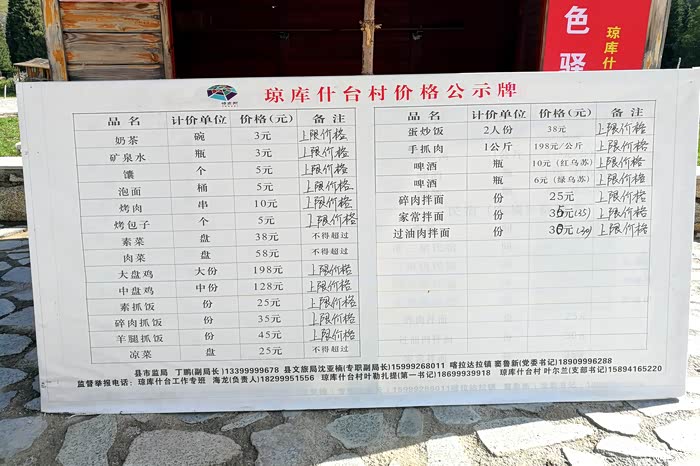 色驿
琼库什
琼库什台村价格公示牌
品名 计价单位 价格(元) 备注
奶茶 碗 3元 上限价格
矿泉水 瓶 3元 上限价格
馕 个 5元 上限价格
泡面 桶 5元 上限价格
烤肉 串 10元 上限价格
烤包子 个 5元 上限价格
素菜 盘 38元 不得超过
肉菜 盘 58元 不得超过
大盘鸡 大份 198元 上限价格
中盘鸡 中份 128元 上限价格
素抓饭 份 25元 上限价格
碎肉抓饭 份 35元 上限价格
羊腿抓饭 份 45元 上限价格
凉菜 盘 25元 不得超过
品名 计价单位 价格(元) 备注
蛋炒饭 2人份 38元 上限价格
手抓肉 1公斤 198元/公斤 上限价格
啤酒 瓶 10元(红乌苏) 上限价格
啤酒 瓶 6元(绿乌苏) 上限价格
碎肉拌面 份 25元 上限价格
家常拌面 份 35元(35) 上限价格
过油肉拌面 份 30元(30) 上限价格
县市监局 丁鹏(副局长)13399999678 县文旅局沈亚楠(专职副局长)15999268011 喀拉达拉镇 窦鲁新(党委书记)18909996288
监督举报电话: 琼库什台工作专班 海龙(负责人)18299951556 琼库什台村叶勒扎提(第一书记)18699939918 琼库什台村 叶尔兰(支部书记)15894165220